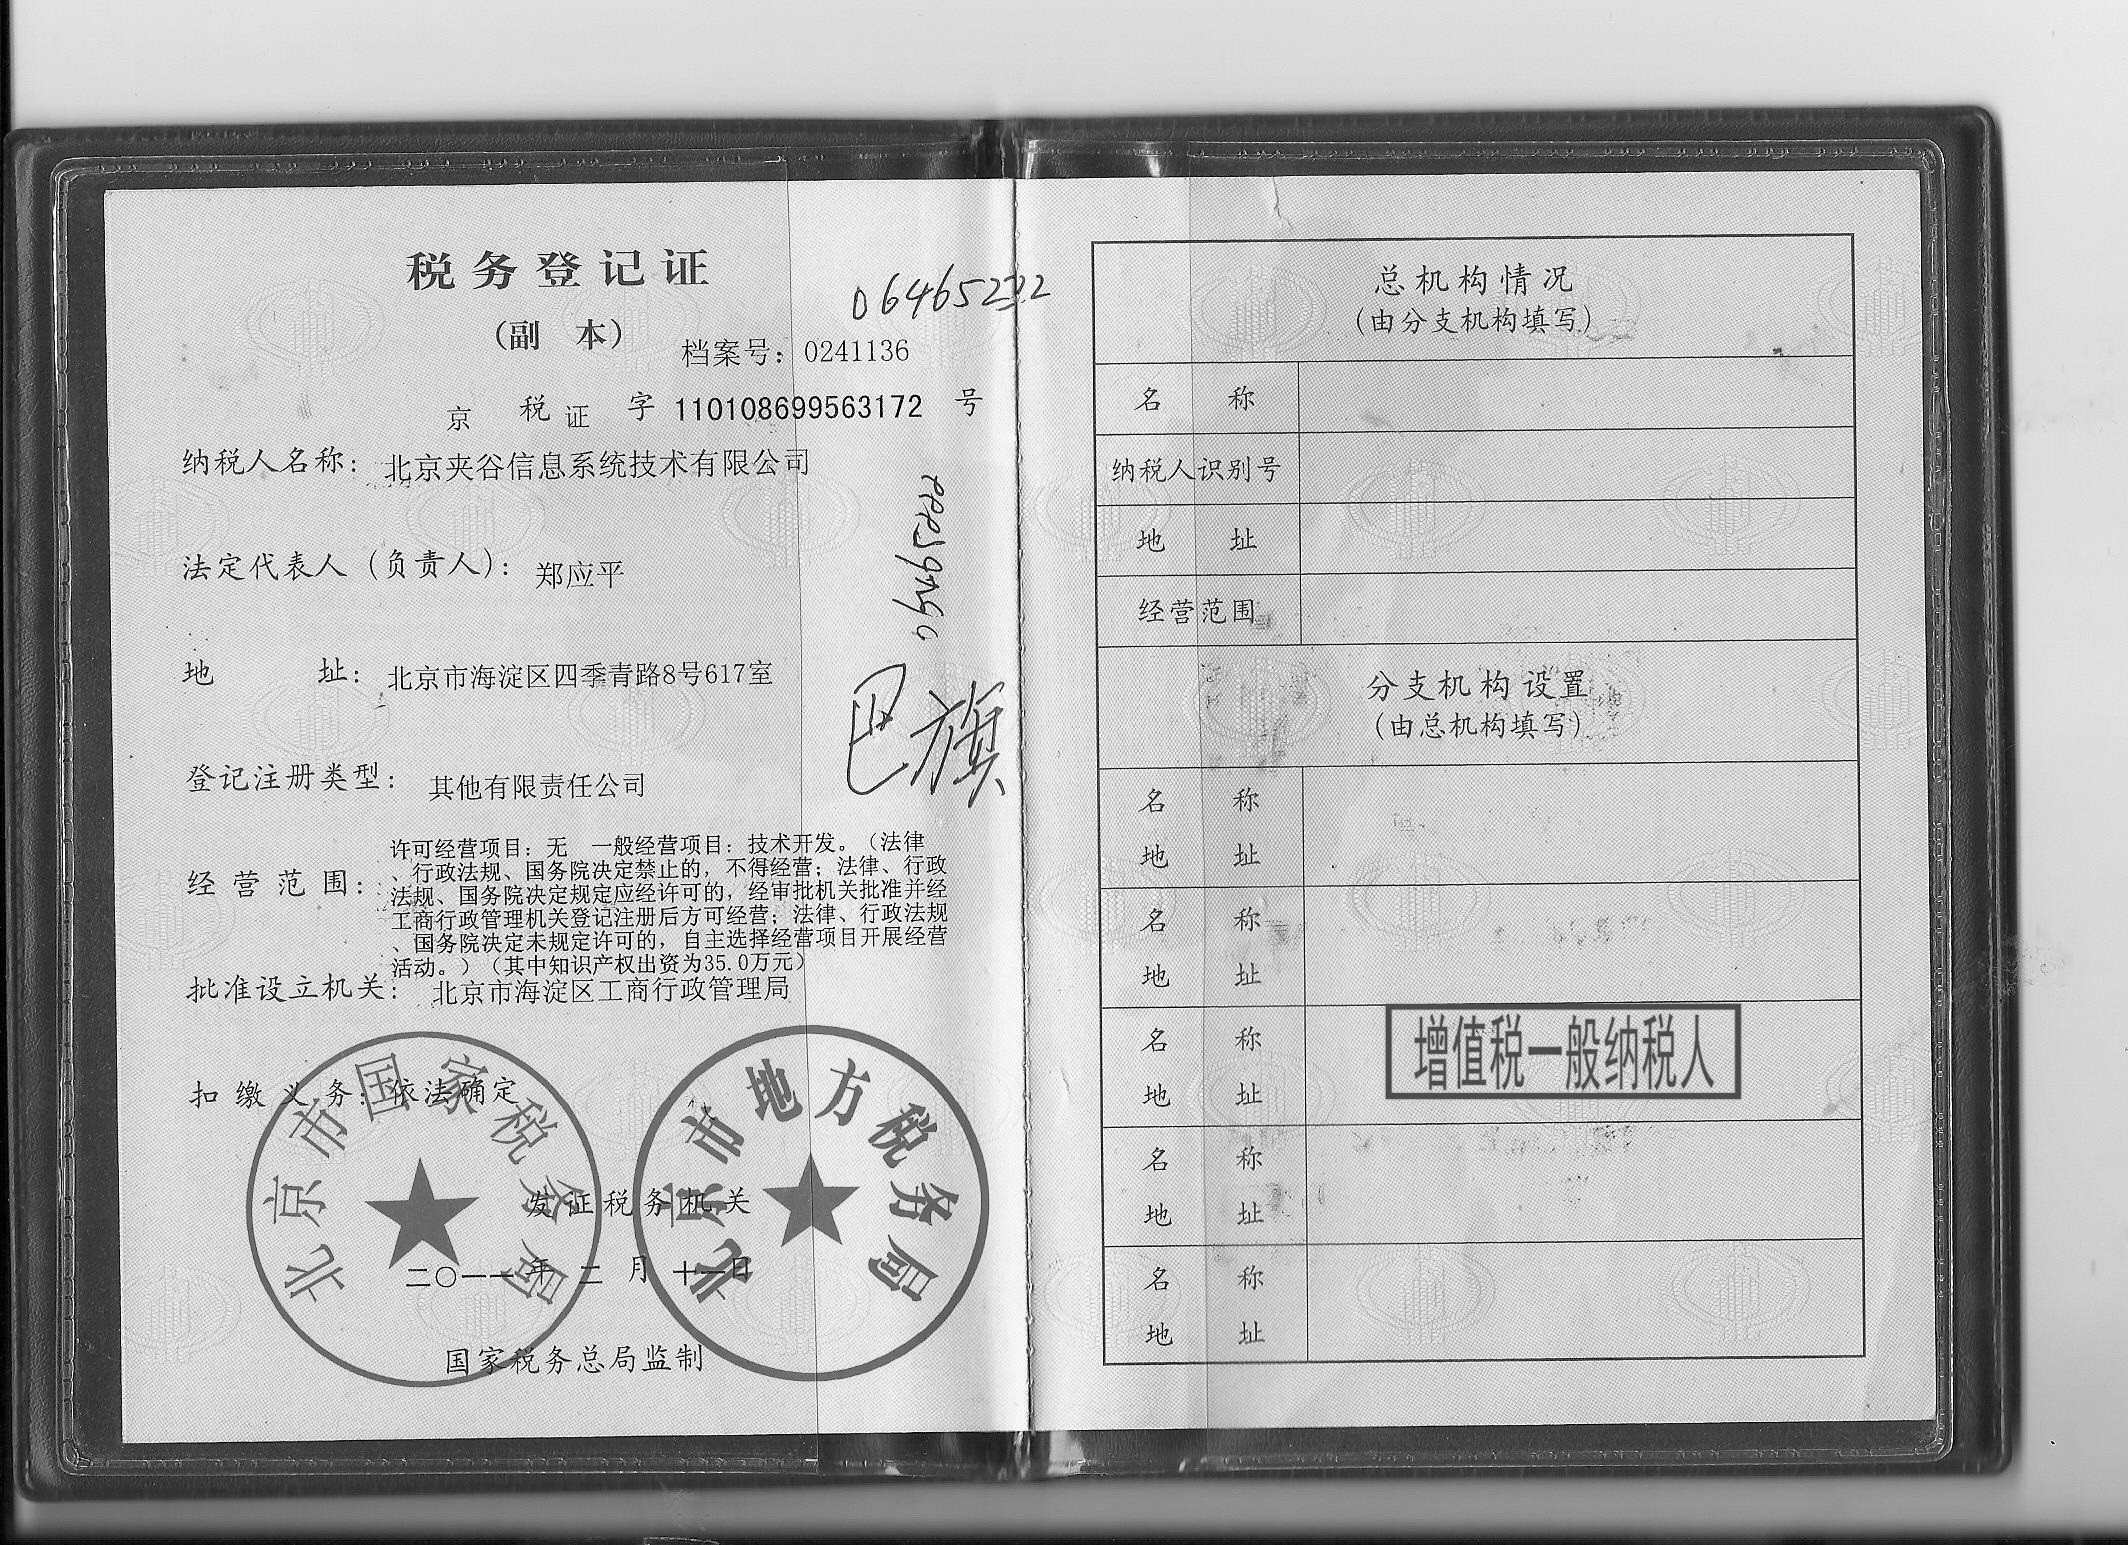 税务登记证
（副 本）
档案号：0241136
京 税 证 字 110108699563172 号
纳税人名称：北京夹谷信息系统技术有限公司
法定代表人（负责人）：郑应平
地 址：北京市海淀区四季青路8号617室
登记注册类型：其他有限责任公司
经营范围：许可经营项目：无 一般经营项目：技术开发。（法律
、行政法规、国务院决定禁止的，不得经营；法律、行政
法规、国务院决定规定应经许可的，经审批机关批准并经
工商行政管理机关登记注册后方可经营；法律、行政法规
、国务院决定未规定许可的，自主选择经营项目开展经营
活动。）（其中知识产权出资为35.0万元）
批准设立机关：北京市海淀区工商行政管理局
扣缴义务：依法确定
发证税务机关
二〇一一年 二 月 十一日
国家税务总局监制
北京市国家税务局
北京市地方税务局
巴旗
总机构情况
（由分支机构填写）
名 称
纳税人识别号
地 址
经营范围
分支机构设置
（由总机构填写）
名 称
地 址
名 称
地 址
名 称
地 址
增值税一般纳税人
名 称
地 址
名 称
地 址